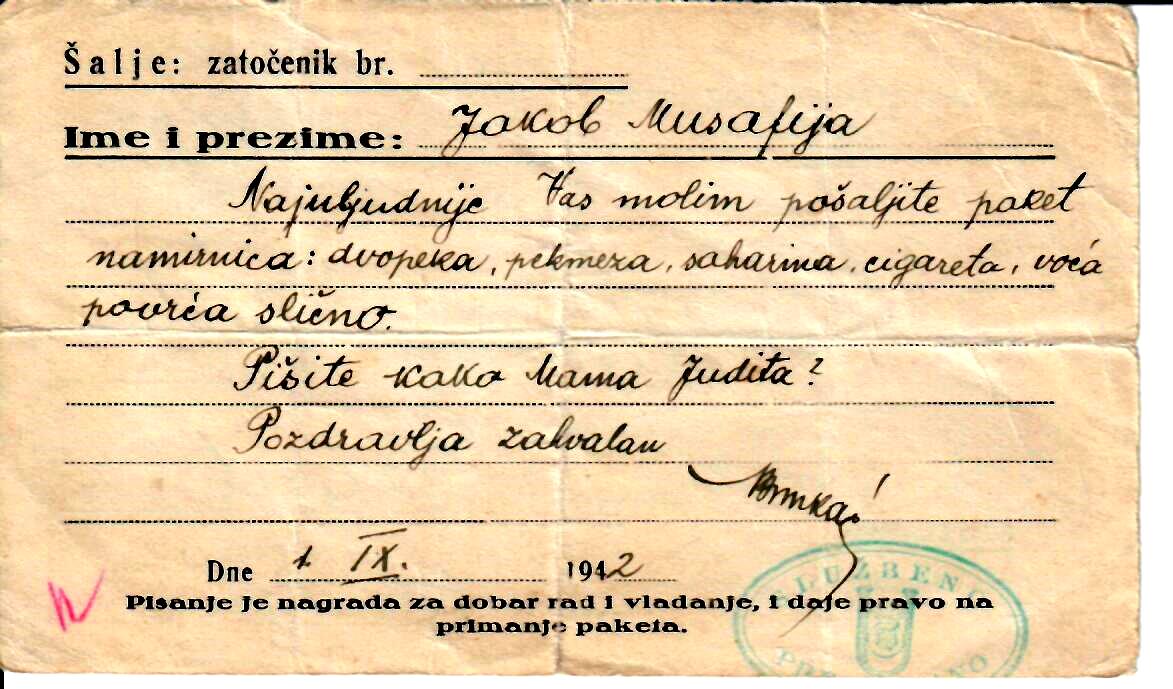 Šalje: zatočenik br.
Ime i prezime: Jakob Musafija
Najuljudnije Vas molim pošaljite paket
namirnica: dvopeka, pekmeza, saharina, cigareta, voća
povrća slično.
Pišite kako Mama Judita?
Pozdravlja zahvalan
Dne 1. IX. 1942
Pisanje je nagrada za dobar rad i vladanje, i daje pravo na
primanje paketa.